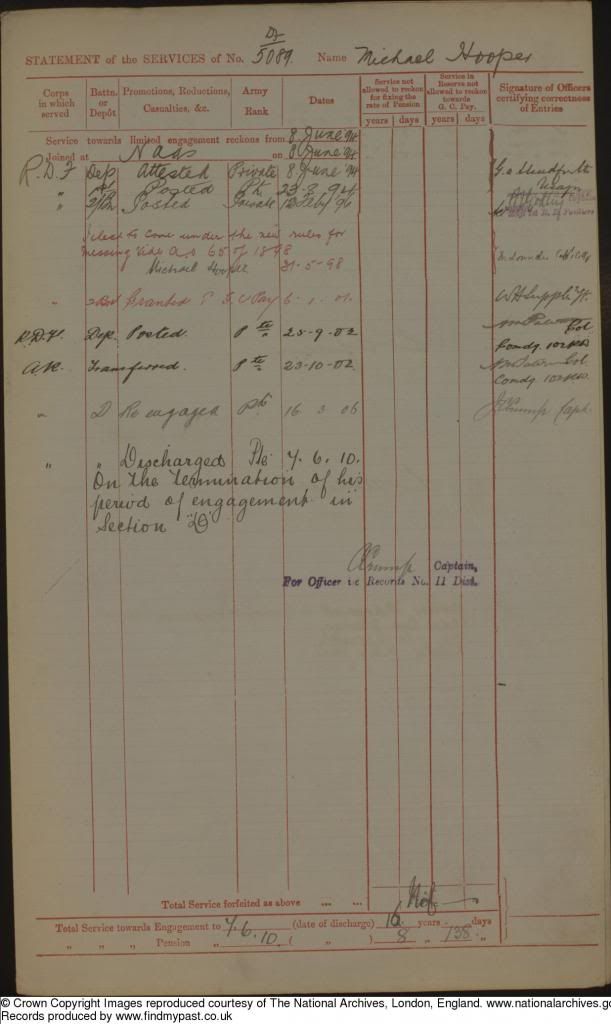 D/
STATEMENT of the SERVICES of No. 5089. Name Michael Hooper
Corps in which served
Battn. or Depôt
Promotions, Reductions, Casualties, &c.
Army Rank
Dates
Service not allowed to reckon for fixing the rate of Pension
Service in Reserve not allowed to reckon towards G. C. Pay.
Signature of Officers certifying correctness of Entries
years days years days
Service towards limited engagement reckons from 8 June 94
Joined at Naas on 8 June 94
R.D.F Dep Attested Private 8 June 94
" Posted Pte 23.8.94
" Posted Private 12 Feby 96
I elect to come under the new rules for
messing Vide A.O 65 of 1898
Michael Hooper 31-5-98
" Granted G. C Pay 6.1.01.
R.D.F. Dep. Posted. Pte 25-9-02 Col
Comdg. 102 R.D.
A.R. Transferred. Pte 23-10-02 Col
Comdg. 102 R.D.
" D Re engaged Pte 16 3 06 Crump Capt.
" " Discharged Pte 7.6.10.
On the termination of his
period of engagement in
Section "D"
Crump Captain,
For Officer i/c Records No. 11 Dist.
Total Service forfeited as above ... ... Nil
Total Service towards Engagement to 7.6.10. (date of discharge) 16 years - days
" " " Pension " ( " ) 8 " 138 "
© Crown Copyright Images reproduced courtesy of The National Archives, London, England. www.nationalarchives.go
Records produced by www.findmypast.co.uk